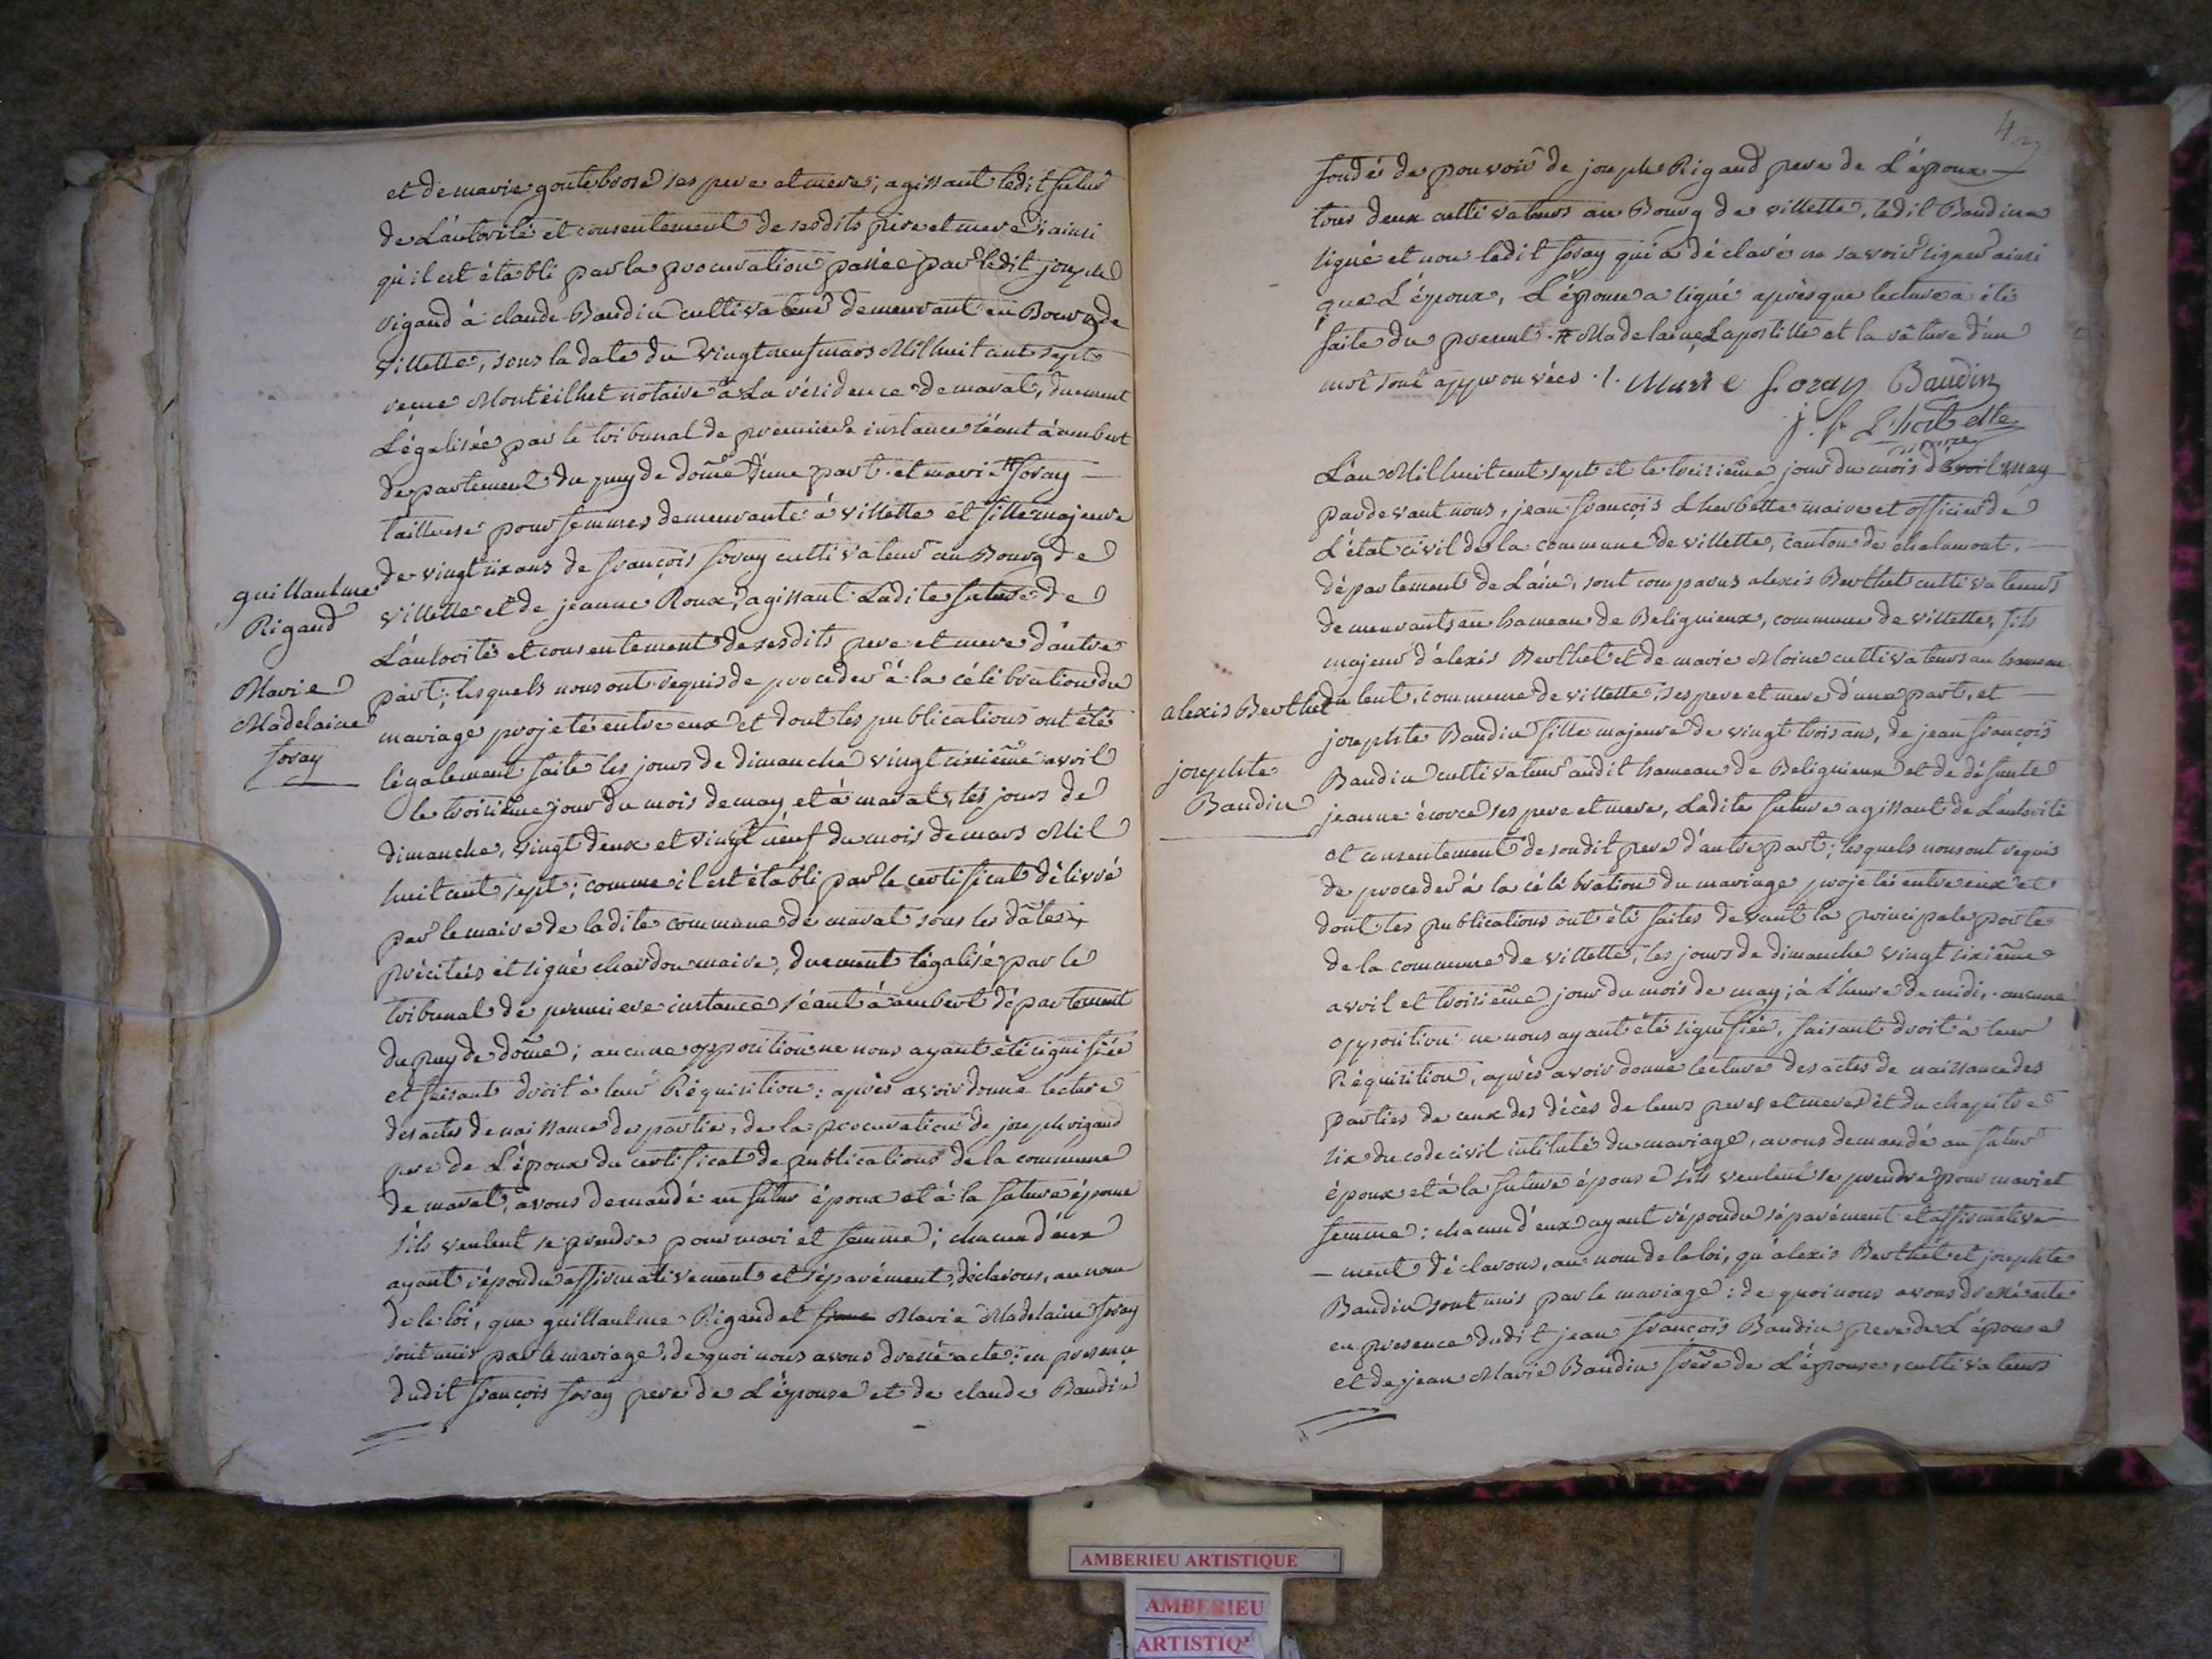 et de marie goutebrose ses pere et mere; agissant ledit futur
de L'autorité et consentement de sesdits pere et mere; ainsi
qu'il est établi par la procuration passée par ledit joseph
rigaud à claude Baudin cultivateur demeurant au Bourg de
villette, sous la date du vingt neuf mars Mil huit cent sept
reçue Monteilhet notaire à La résidence de marat, duement
Légalisée par le tribunal de premiere instance séant à ambert
departement du puy de dome d'une part. et marie # foray
tailleuse pour femmes demeurante à villette et fille majeure
de vingt six ans de françois foray cultivateur au Bourg de
villette et de jeanne Roux, agissant Ladite future de
L'autorité et consentement de sesdits pere et mere d'autre
part; lesquels nous ont requis de proceder à la célébration du
mariage projeté entre eux et dont les publications ont étés
légalement faite les jours de dimanche vingt sixième avril
le troisième jour du mois de may et à marat, les jours de
dimanche, vingt deux et vingt neuf du mois de mars Mil
huit cent sept; comme il est établi par le certificat délivré
par le maire de ladite commune de marat sous les dâtes
précitées et signé chardon maire, duement légalisé par le
tribunal de premiere instance séant à ambert département
du puy de dôme; aucune opposition ne nous ayant été signifiée
et faisant droit à leur Réquisition: après avoir donné lecture
des actes de naissance de partie, de la procuration de joseph rigaud
pere de L'époux du certificat de publications de la commune
de marat, avons demandé au futur époux et à la future épouse
s'ils veulent se prendre pour mari et femme; chacun d'eux
ayant répondu affirmativement et séparément, déclarons, au nom
de la loi, que guillaulme Rigaud et Marie Madelaine foray
sont unis par le mariage, de quoi nous avons dressé acte; en presence
dudit françois foray pere de L'épouse et de claude Baudin
guillaulme
Rigaud
Marie
Madelaine
foray
fondé de pouvoir de joseph Rigaud pere de L'époux
tous deux cultivateurs au Bourg de villette, ledit Baudin a
signé et non ledit foray qui a déclaré ne savoir signer ainsi
que L'époux, L'épouse a signé après que lecture a été
faite du present. # Madelaine, Lapostille et la râture d'un
mot sont approuvées ./. Marie foray Baudin
j. f. Lherbette
maire
L'an Mil huit cent sept et le treizième jour du mois d'avril may
pardevant nous, jean françois Lherbette maire et officier de
L'état civil de la commune de villette, canton de chalamont,
département de L'ain, sont comparus alexis Berthet cultivateurs
demeurants au hameau de Beligneux, commune de villette, fils
majeur d'alexis Berthet et de marie Moine cultivateurs au hameau
commune de villette, ses pere et mere d'une part, et
josephte Baudin fille majeure de vingt trois ans, de jean françois
Baudin cultivateur audit hameau de Beligneux et de défunte
jeanne écorce ses pere et mere, Ladite future agissant de L'autorité
et consentement de sondit pere d'autre part; lesquels nous ont requis
de proceder à la célébration du mariage projeté entre eux et
dont les publications ont été faites devant la principale porte
de la commune de villette, les jours de dimanche vingt sixième
avril et troisième jour du mois de may; à L'heure de midi, aucune
opposition ne nous ayant été signifiée, faisant droit à leur
Réquisition, après avoir donné lecture des actes de naissance des
parties de ceux des décès de leurs peres et meres et du chapitre
six du code civil intitulé du mariage, avons demandé au futur
époux et à la future épouse s'ils veulent se prendre pour mari et
femme: chacun d'eux ayant répondu séparément et affirmative-
-ment déclarons, au nom de la loi, qu'alexis Berthet et josephte
Baudin sont unis par le mariage: de quoi nous avons dressé acte
en presence dudit jean françois Baudin pere de L'épouse
et de jean Marie Baudin frère de L'épouse, cultivateurs
alexis Berthet
josephte
Baudin
AMBERIEU ARTISTIQUE
AMBERIEU
ARTISTIQ